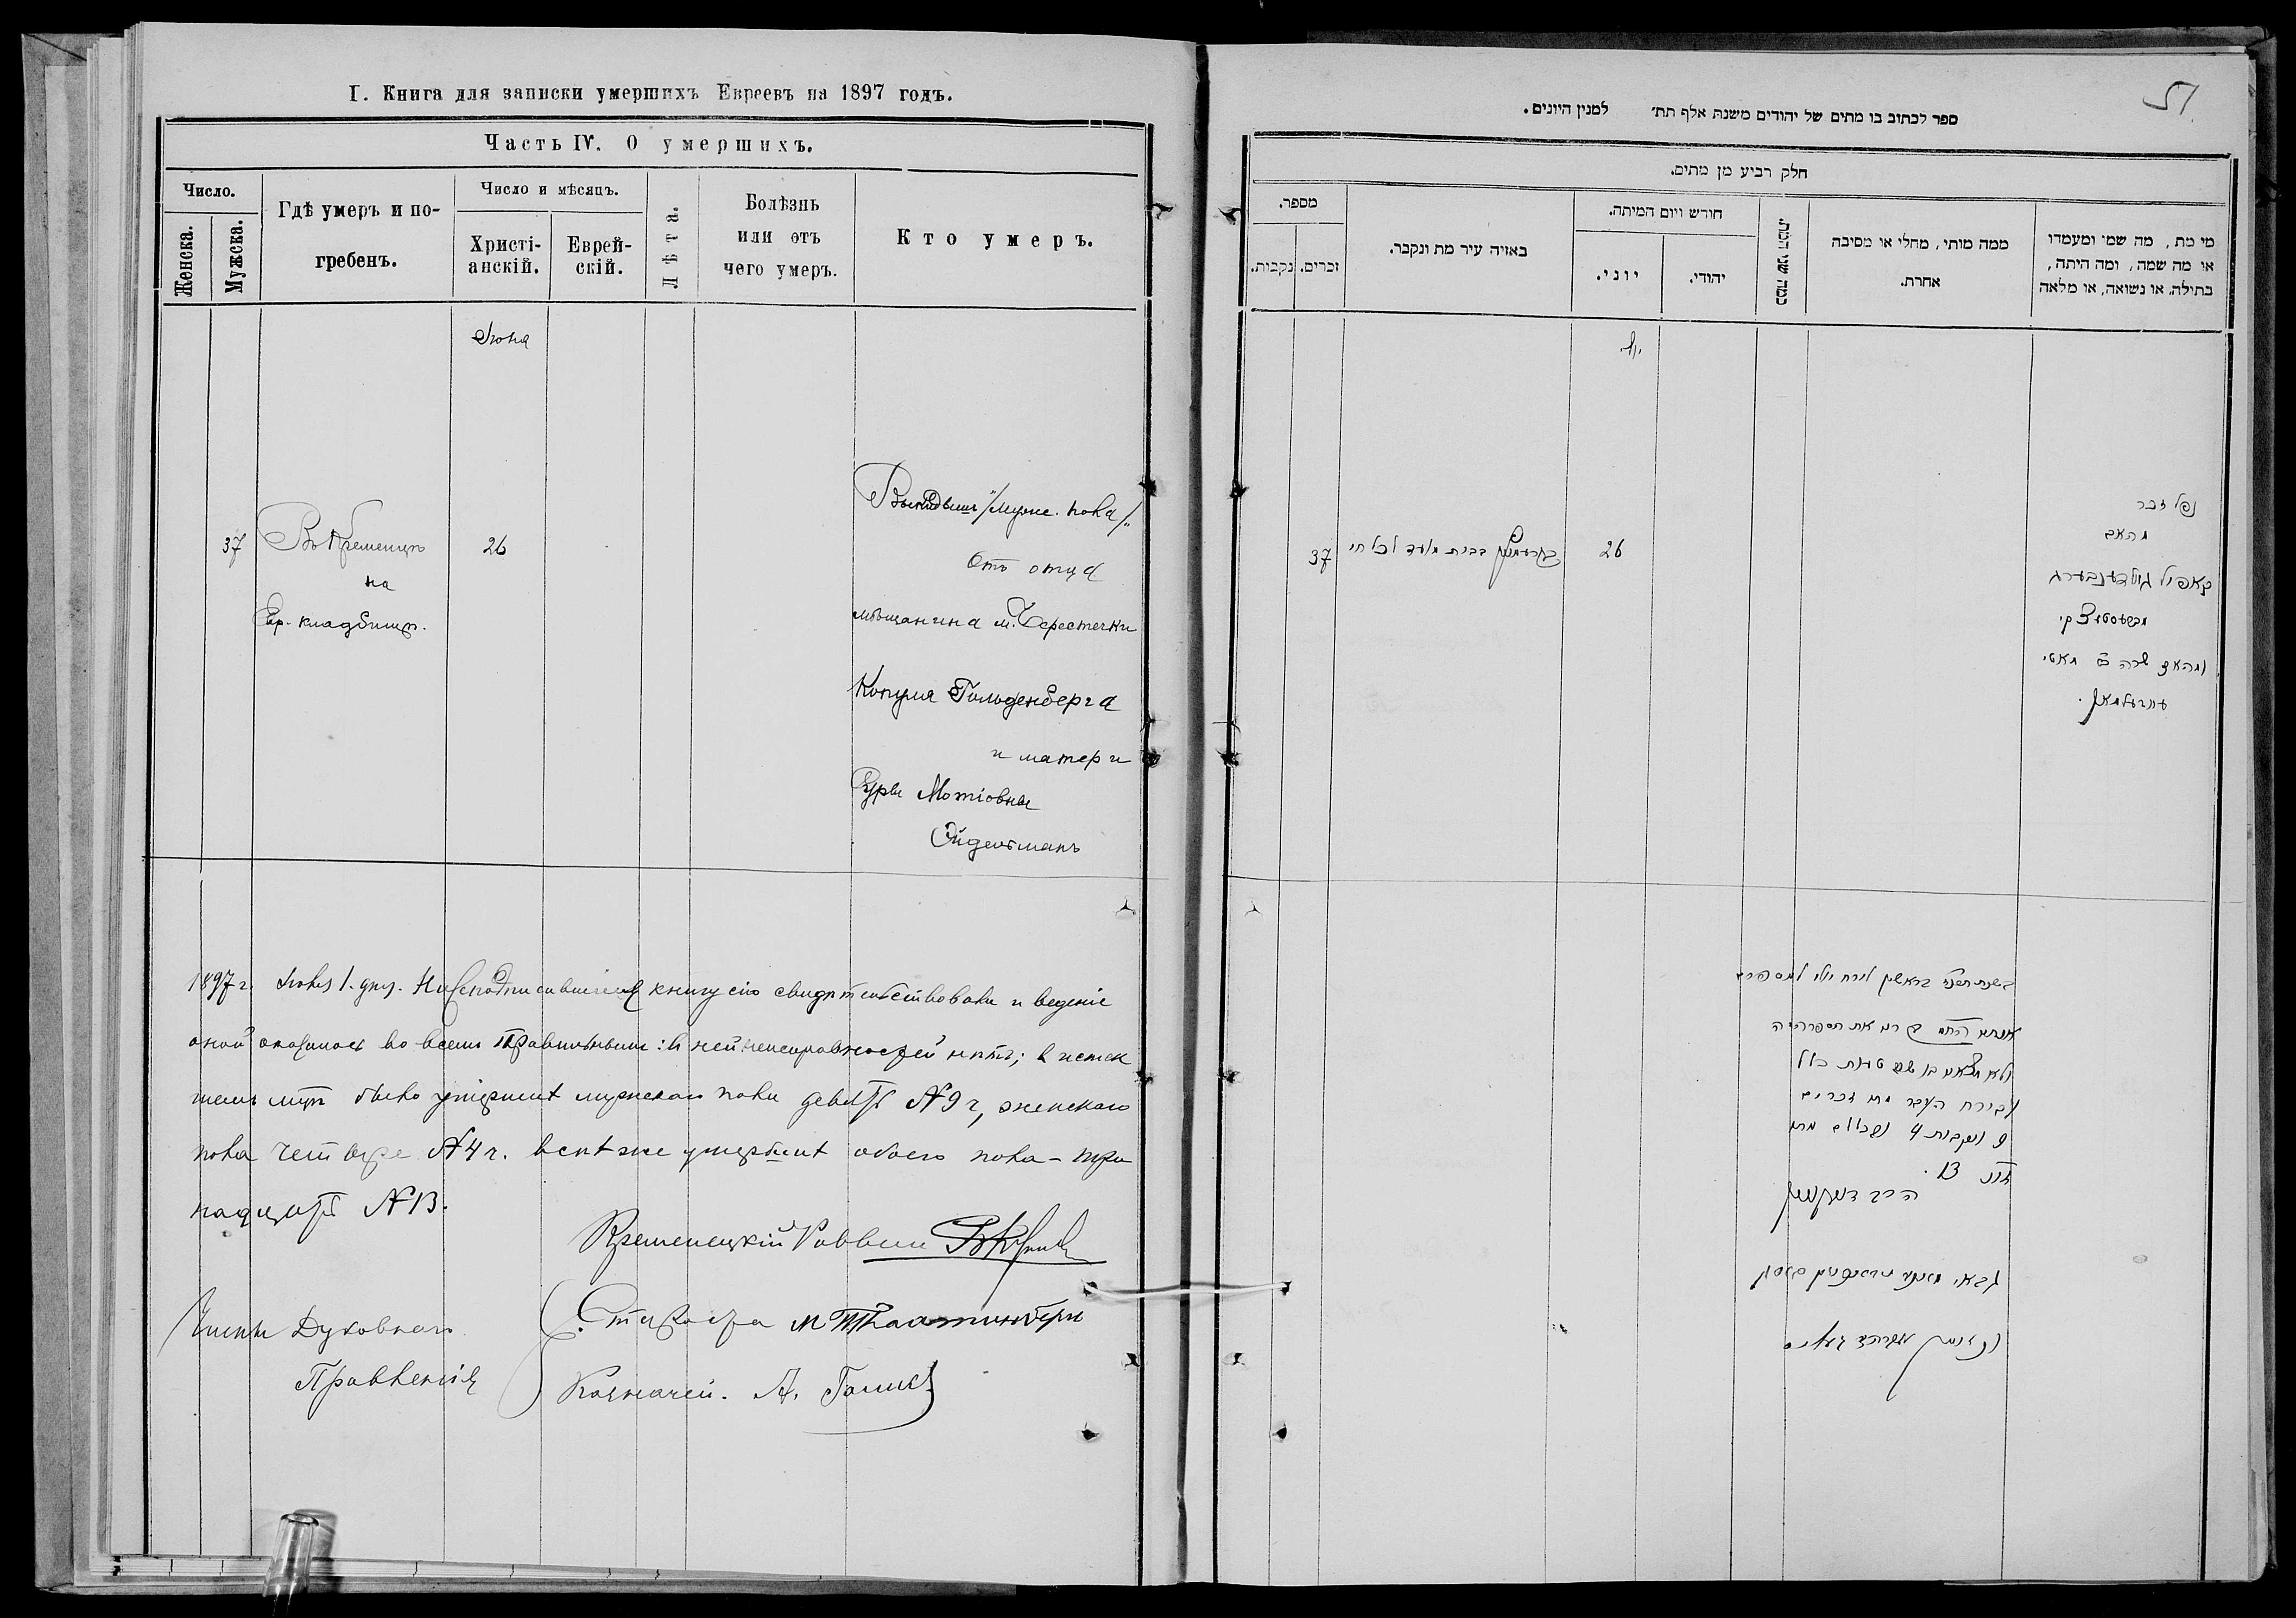 I. Книга для записки умершихъ Евреевъ на 1897 годъ.
Часть IV. О умершихъ.
Число.
Женска.
Мужска.
Гдѣ умеръ и по-
гребенъ.
Число и мѣсяцъ.
Христі-
анскій.
Еврей-
скій.
Лѣта.
Болѣзнь
или отъ
чего умеръ.
Кто умеръ.
Іюня
37
Въ Кременцѣ
на
Евр. кладбищѣ.
26
Выкидышъ /мужс. пола/
Отъ отца
мѣщанина м. Берестечки
Копуля Гольденберга
и матери
Суры Мотіовны
Эйдельманъ
1897 г. Іюля 1. дня. Нижеподписавшіеся книгу сію свидѣтельствовали и веденіе
оной оказалось во всемъ правильнымъ: в ней неисправностей нѣтъ; в истек
шемъ мцѣ было умершихъ мужескаго пола девять №9 ч, женскаго
пола четыре №4 ч. всего же умершихъ обоего пола - три
надцать №13.
Кременецкій Раввинъ
Члены Духовнаго
Правленія
Староста М
Казначей. А.
51
ספר לכתוב בו מתים של יהודים משנת אלף תת׳ למנין היונים.
חלק רביע מן מתים.
מספר.
נקבות.
זכרים.
באזיה עיר מת ונקבר.
חורש ויום המיתה.
יוני.
יהודי.
כמה שני חיות.
ממה מותי, מחלי או מסיבה
אחרת.
מי מת, מה שמו ומעמדו
או מה שמה, ומה היתה,
בתילה, או נשואה, או מלאה
37
בקרעמניץ בבית מועד לכל חי
26
נפל זכר
מהאב
קאפיל גולדענבערג
מבערעסטיצקי
ומהאם שרה בת מאטי
איידעלמאן.
ולא מצאנו בו שום טעות כלל
ובירח העבר מתו זכרים
9 ונקבות 4 ובכולם מתו
13.